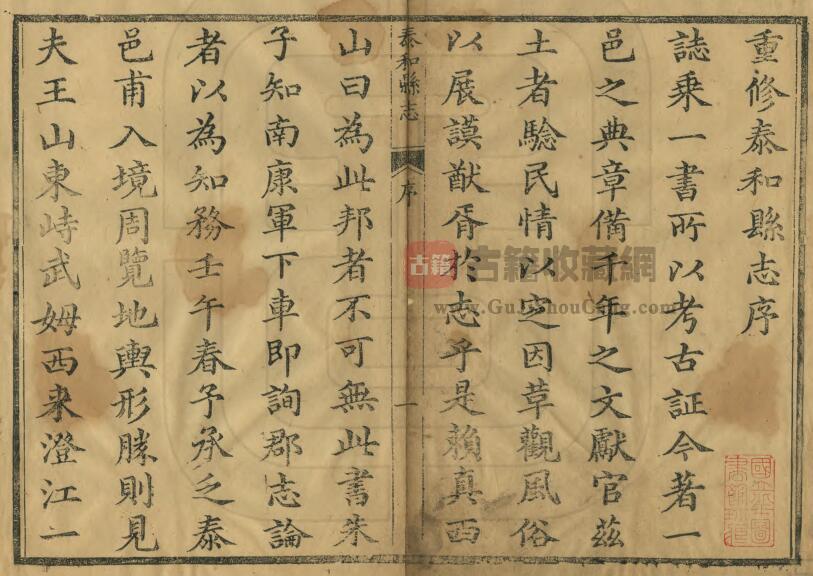 重修泰和縣志序
誌乗一書所以考古証今著一
邑之典章備千年之文獻官兹
土者驗民情以定因革觀風俗
以展謨猷胥於志乎是賴真西
泰和縣志
序
一
山曰為此邦者不可無此書朱
子知南康軍下車即詢郡志論
者以為知務壬午春予承乏泰
邑甫入境周覽地輿形勝則見
夫王山東峙武姆西来澄江一
古籍
古籍收藏網
www.GuJiShouCang.com